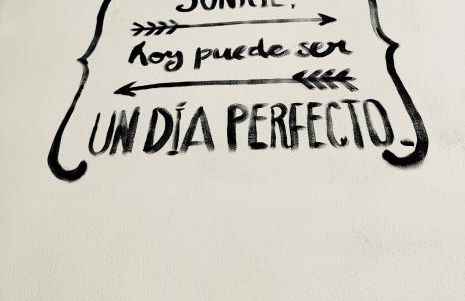 hoy puede ser
UN DÍA PERFECTO_